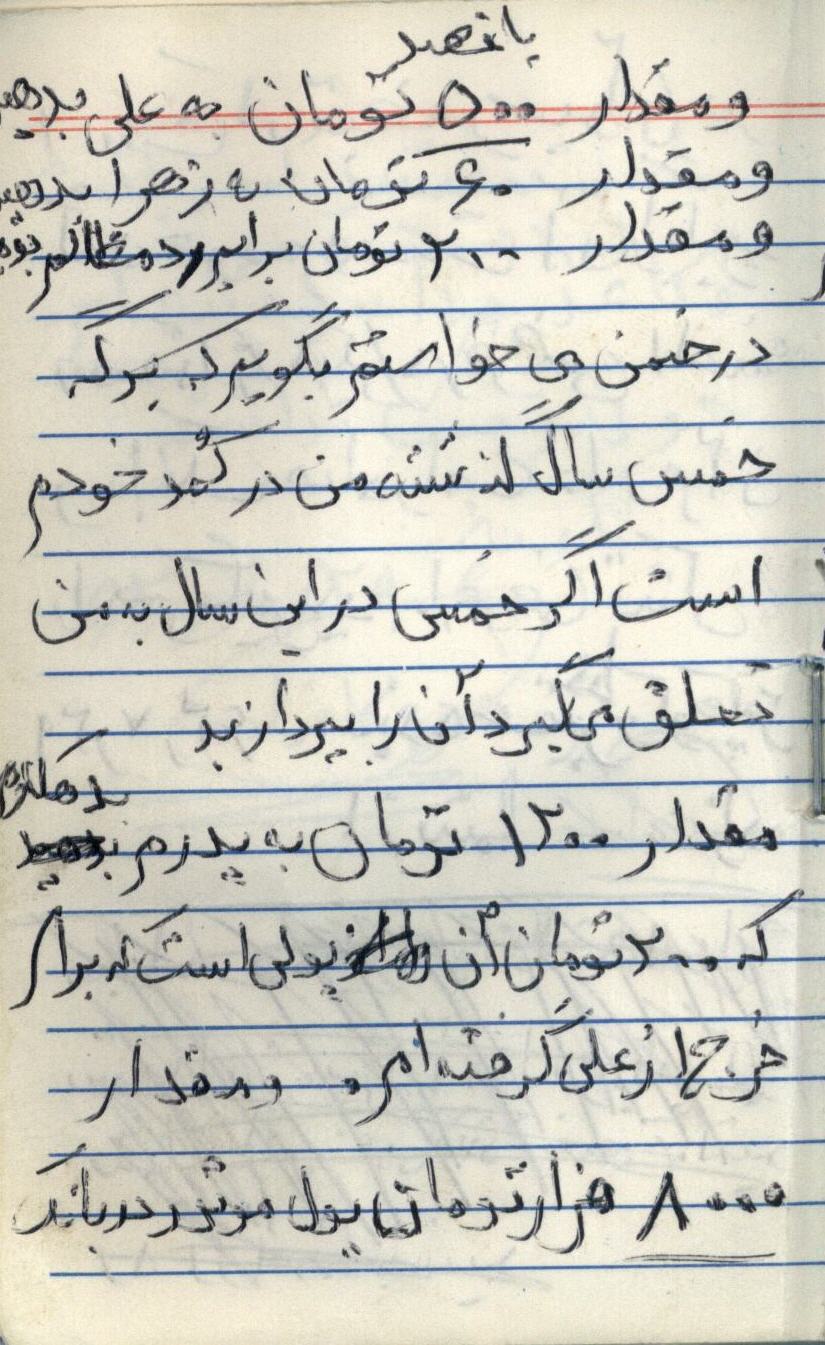 پانصد
و مقدار ۵۰۰ تومان به علی بدهید
و مقدار ۶۰ تومان به زهرا بدهید
و مقدار ۲۰۰ تومان برایم رد مظالم
در ضمن می خواستم بگویم که برگه
خمس سال گذشته من در کمد خودم
است اگر خمسی در این سال به من
تعلق می گیرد آن را بپردازید
مقدار ۱۲۰۰ تومان به پدرم بدهکارم
که ۲۰۰ تومان آن پولی است که برای
خرج از علی گرفته ام و مقدار
۸۰۰۰ هزار تومان پول موتور در بانک